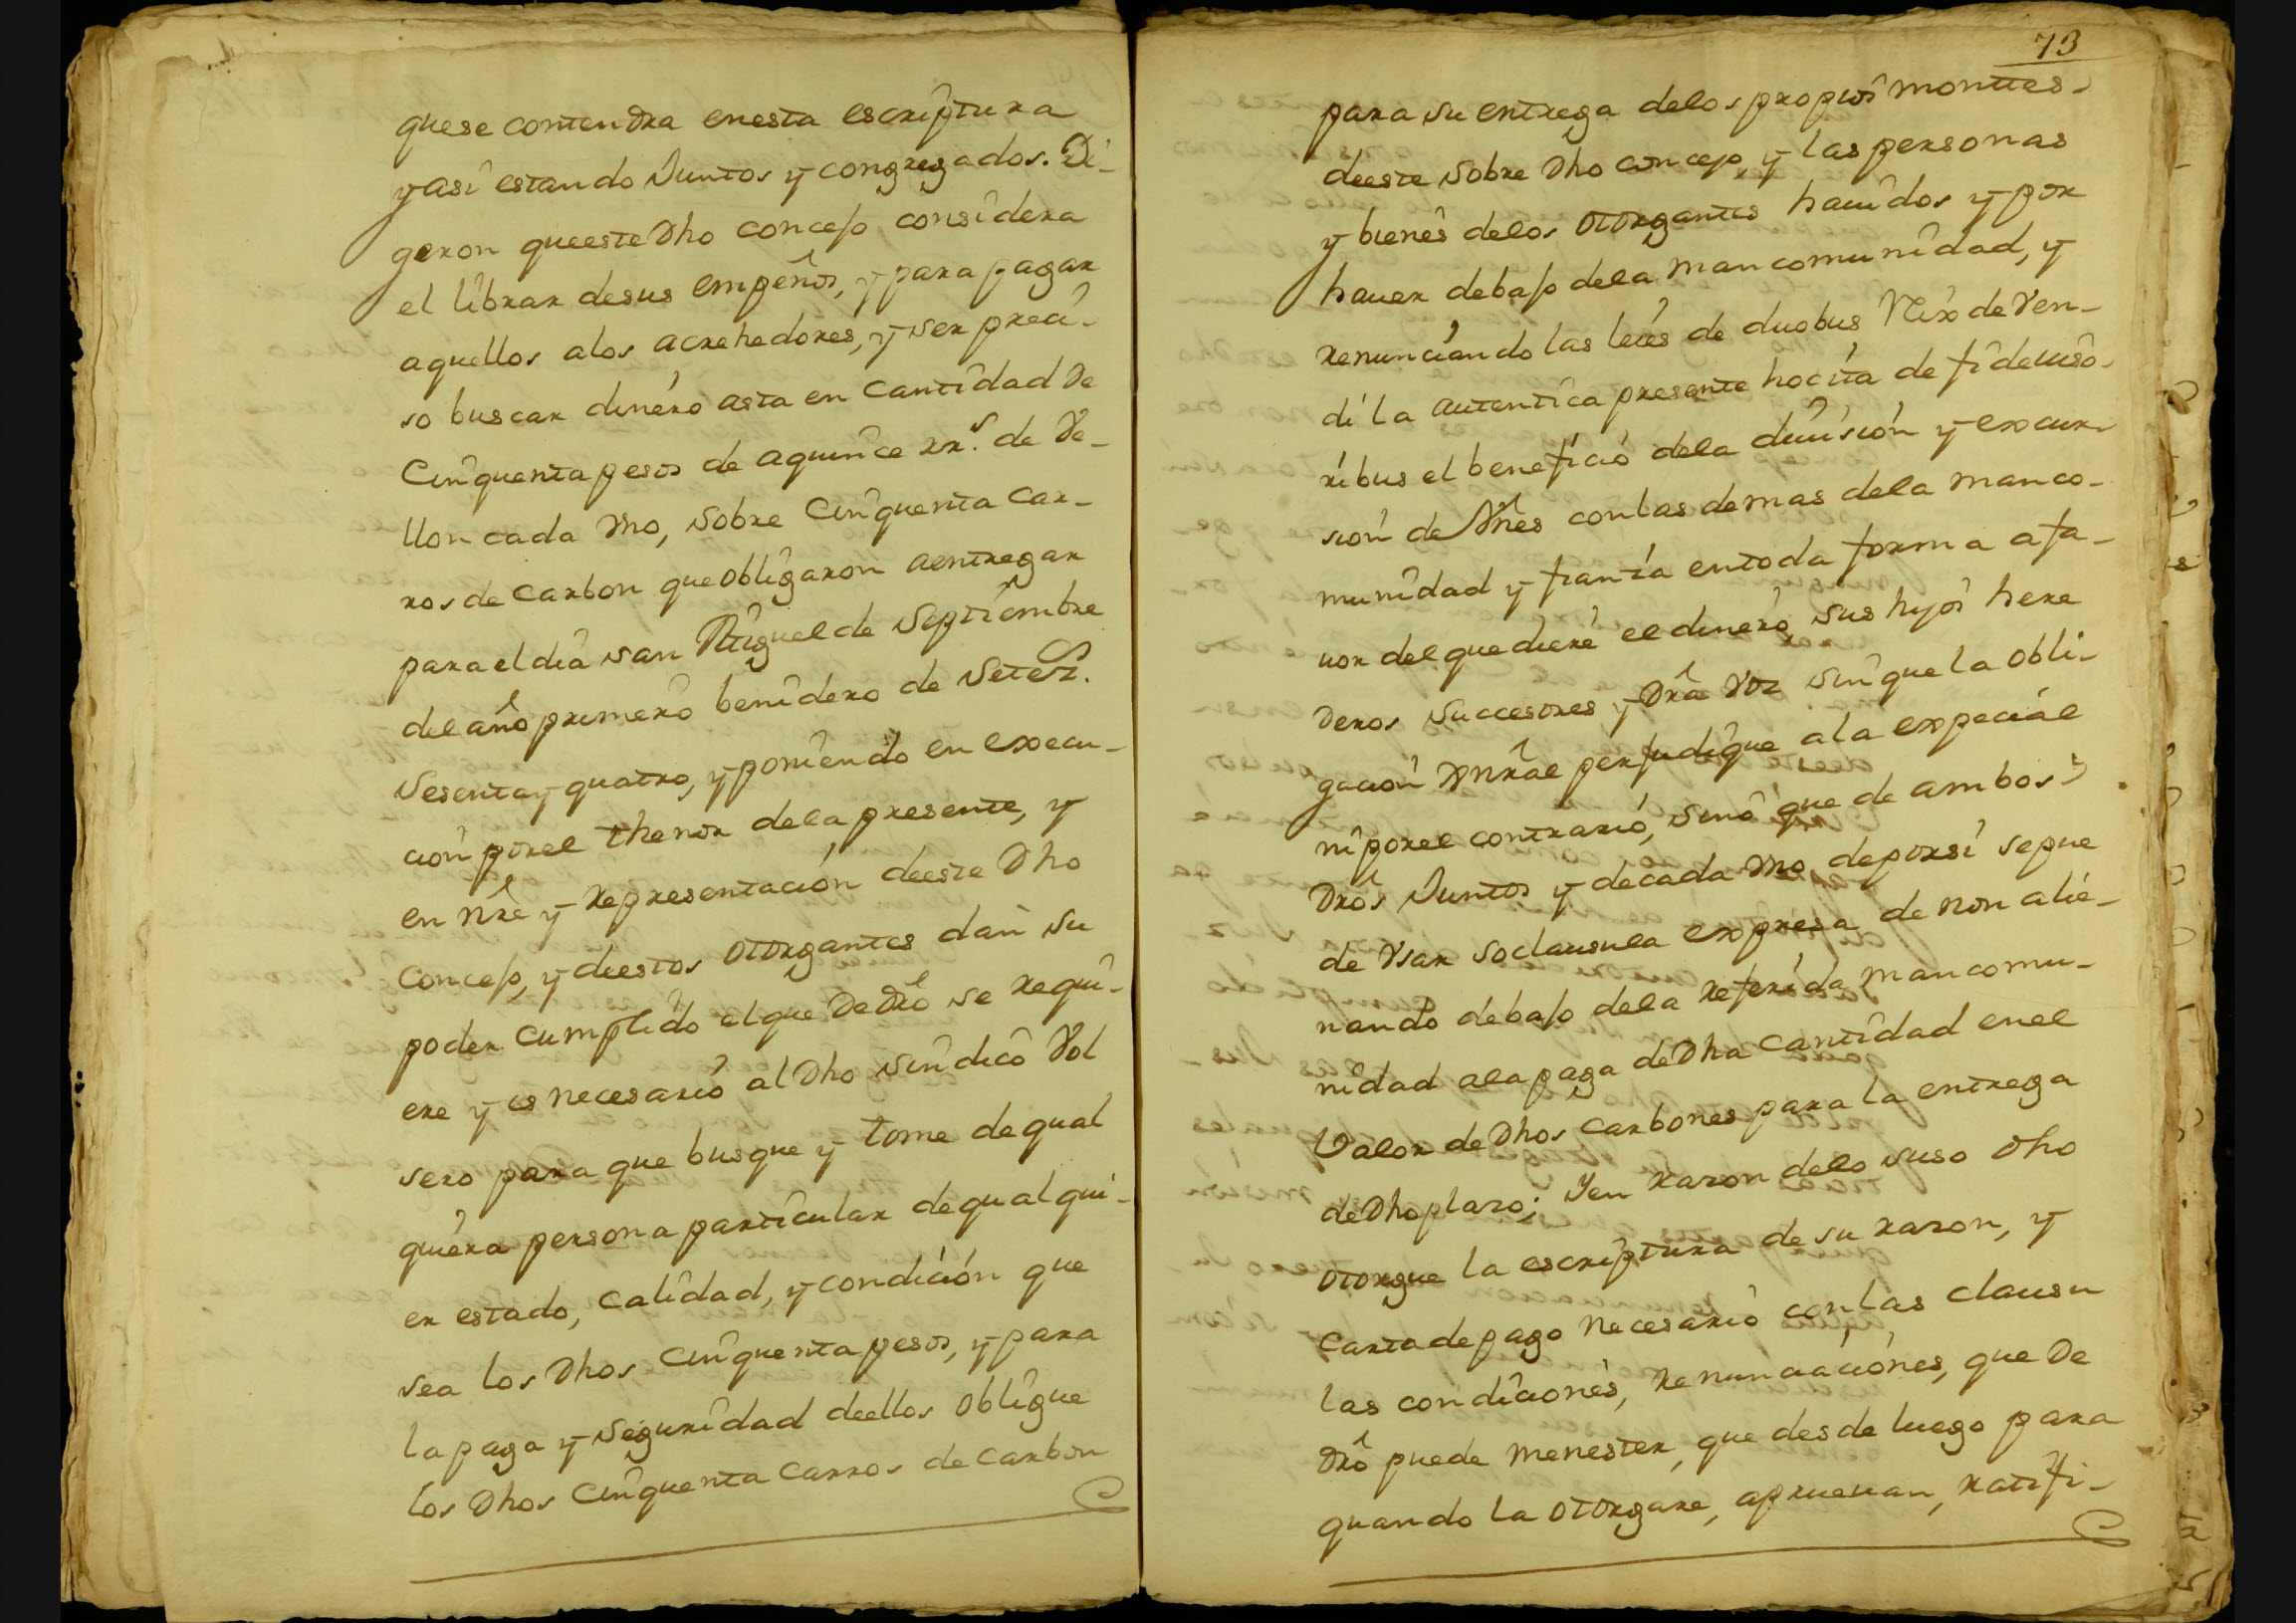 quese contendra enesta escriptura
y asi estando Juntos y congregados. Di-
geron queeste Dho concejo considera
el librar desus empeños, y para pagar
aquellos alos acrehedores, y ser preci-
so buscar dinero asta en Cantidad De
Cinquenta pesos de aquince rr.s de Ve-
llon cada Vno, sobre Cinquenta Car-
ros de Carbon que obligaron aentregar
para el dia san Miguel de Septiembre
del año primero benidero de Setez.
Sesenta y quatro, y poniendo en execu-
cion porel thenor dela presente, y
en nre y Representacion deeste Dho
Concejo, y deestos otorgantes dan su
poder Cumplido elque De Dro se Requi-
ere y es necesario al Dho sindico Vol
sero para que busque y tome de qual
quiera persona particular de qual qui-
er estado, Calidad, y condicion que
sea los Dhos Cinquenta pesos, y para
la paga y seguridad deellos obligue
los Dhos Cinquenta Carros de Carbon
73
para su entrega delos propios monttes
deeste sobre Dho concejo, y las personas
y bienes delos otorgantes hauidos y por
hauer debajo dela mancomunidad, y
renunciando las leies de duobus Reix de Ven-
di la autentica presente hocita de fideiuso-
ribus el beneficio dela diuision y excur-
sion de Vnes con las demas dela manco-
munidad y fianza entoda forma a fa-
uor del que diere el dinero, sus hijos here
Deros Succesores y Dra Voz sinque la obli-
gacion Gnrâl perjudique ala expecial
ni porel contrario, sino que de ambos
Dros Juntos y decada Vno deporsi sepue
de Vsar soclausula expresa de non alie-
nando debajo dela Referida mancomu-
nidad ala paga de Dha Cantidad enel
Valor de Dhos Carbones para la entrega
de Dho plazo; Yen razon delo suso Dho
otorgue la escriptura de su razon, y
Carta de pago Necesario con las clausu
las condiciones, Renunciaciones, que De
Dro puede menester, que desde luego para
quando la otorgare, aprueuan, ratifi-